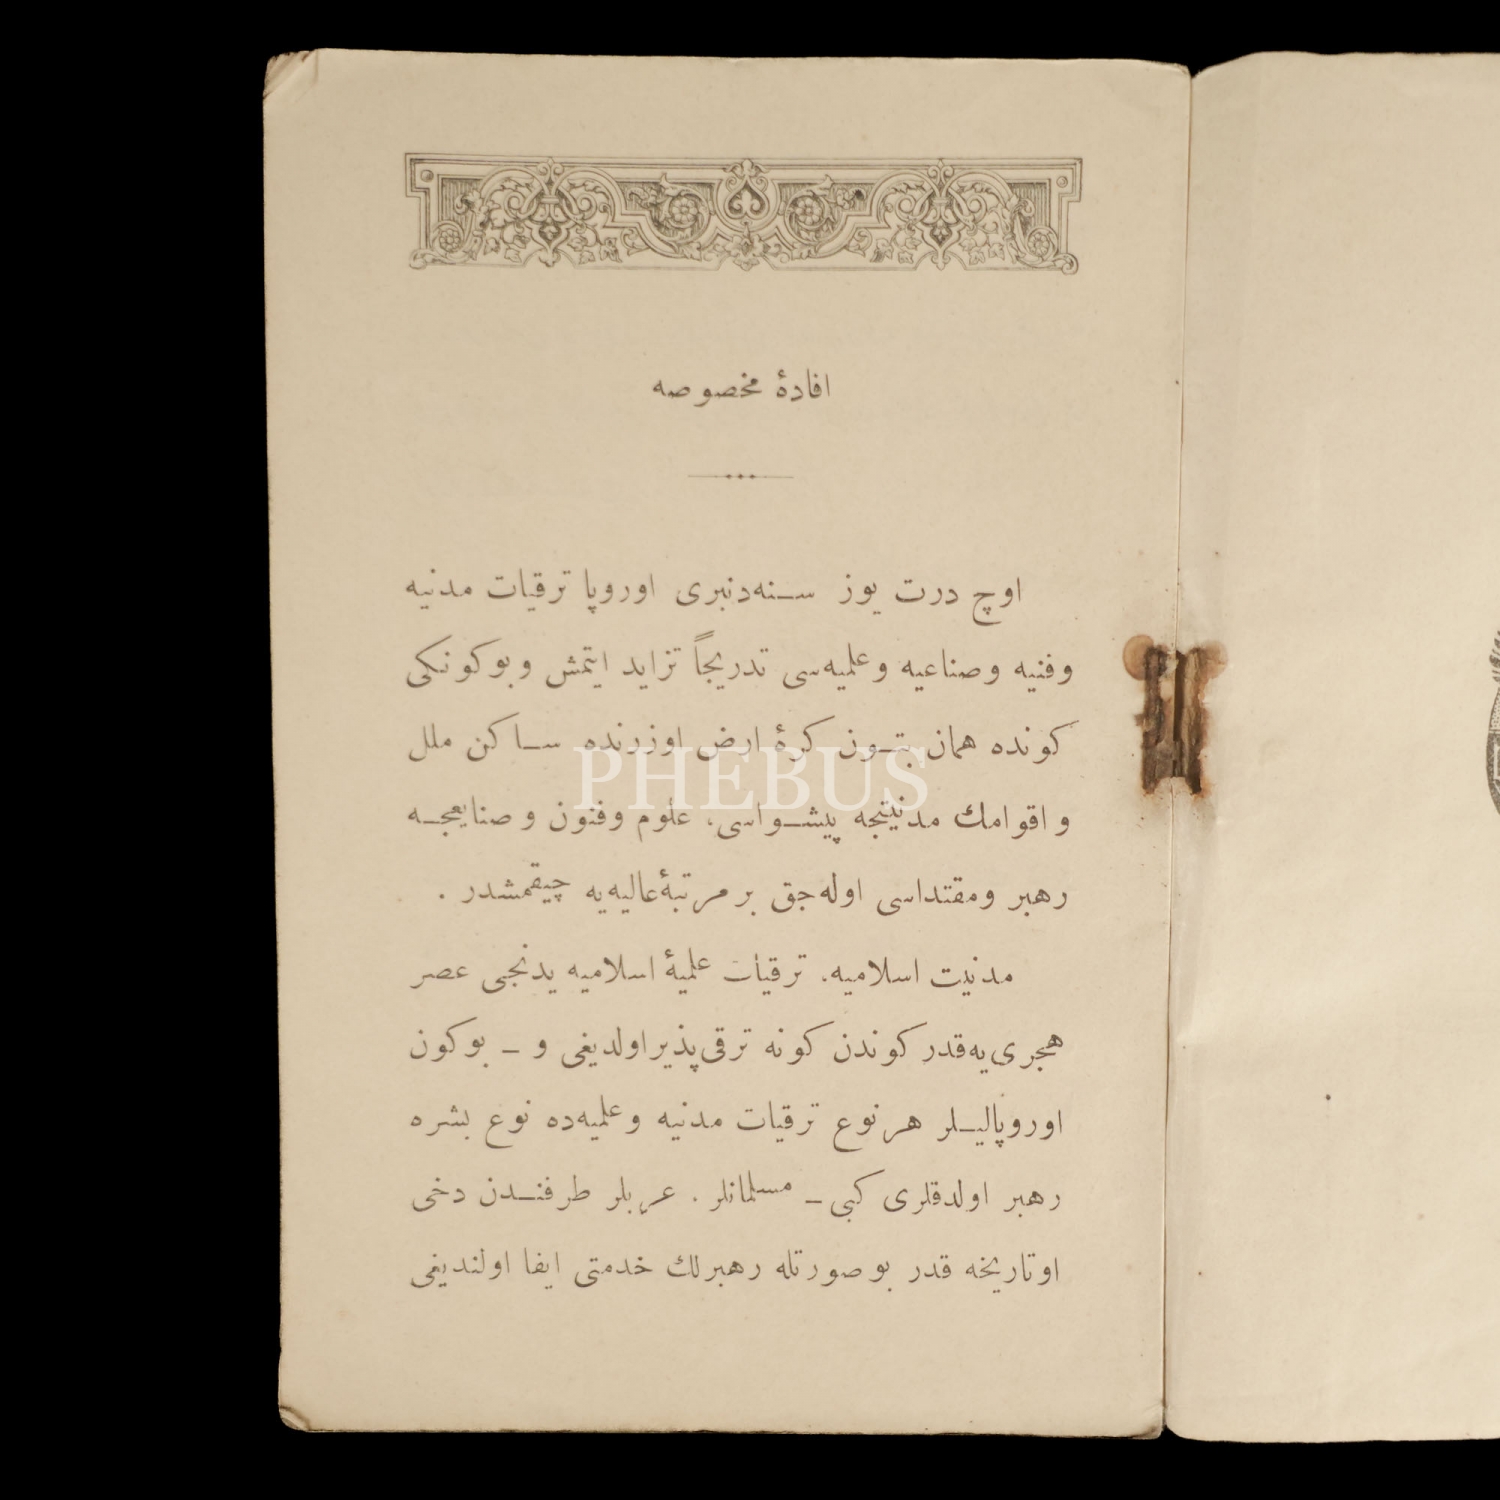 افادۀ مخصوصه
اوچ درت یوز سـنه‌دنبری اوروپا ترقیات مدنیه
وفنیه وصناعیه وعلمیه‌سی تدریجاً تزاید ایتمش وبوکونکی
کونده همان بتـون کرۀ ارض اوزرنده سـاکن ملل
واقوامك مدنیتجه پیشـواسی، علوم وفنون وصنایعجـه
رهبر ومقتداسی اوله‌جق بر مرتبۀ عالیه‌یه چیقمشدر .
مدنیت اسلامیه، ترقیات علمیۀ اسلامیه یدنجی عصر
هجری‌یه‌قدر کوندن کونه ترقی‌پذیر اولدیغی و ـ بوکون
اوروپالیـلر هرنوع ترقیات مدنیه وعلمیه‌ده نوع بشره
رهبر اولدقلری کبی ـ مسلمانلر . عربلر طرفنـدن دخی
اوتاریخه قدر بوصورتله رهبرلك خدمتی ایفا اولندیغی
PHEBUS